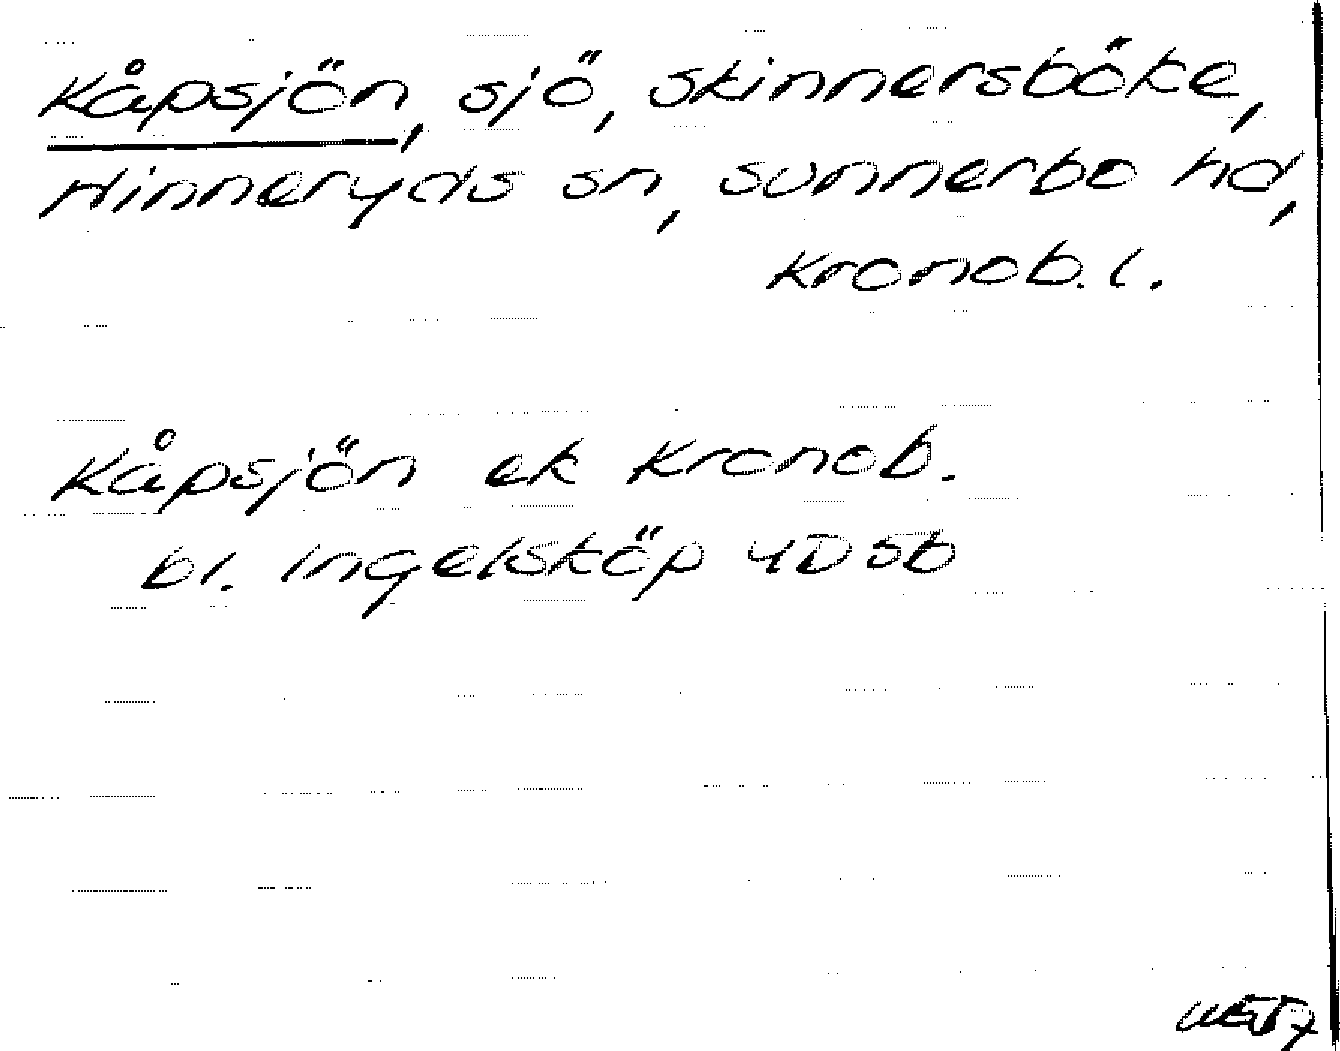 Kåpsjön, sjö, Skinnersböke,
Hinneryds sn, Sunnerbo hd,
Kronob. l.
Kåpsjön ek Kronob.
bl. Ingelsköp 4D 5b